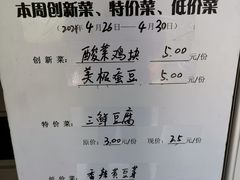 本周创新菜、特价菜、低价菜
(2021年4月26日——4月30日)
创新菜: 酸菜鸡块 5.00元/份
美极蚕豆 5.00元/份
特价菜: 三鲜豆腐
原价: 3.00元/份 现价: 2.5元/份